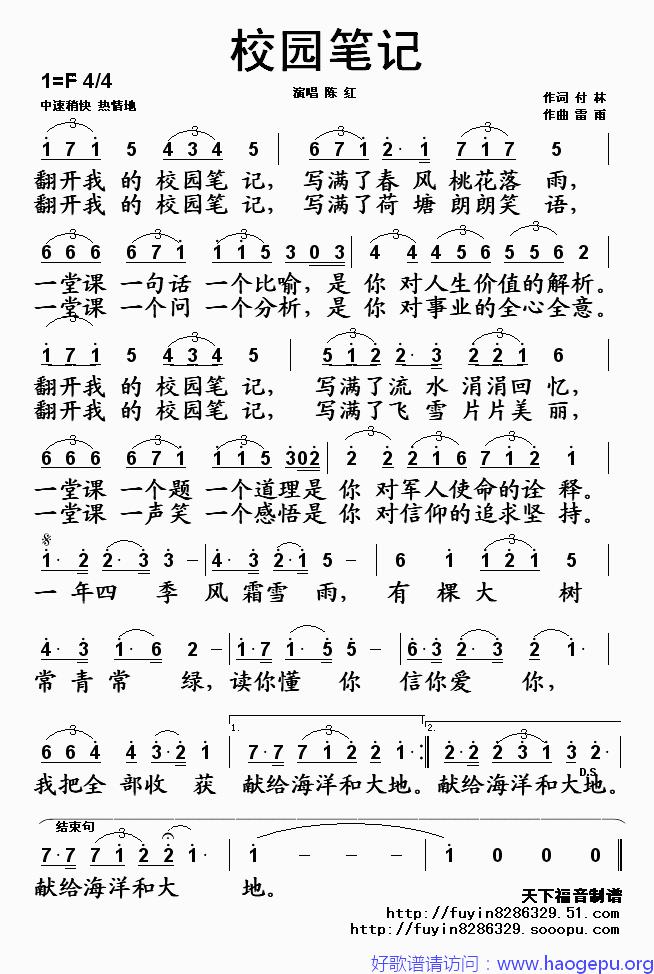 校园笔记
1=F 4/4
演唱 陈 红
中速稍快 热情地
作词 付 林
作曲 雷 雨
1 7 1 5 4 3 4 5 | 6 7 1 2· 1 7 1 7 5 |
翻开我 的 校园笔 记， 写满了春 风 桃花落 雨，
翻开我 的 校园笔 记， 写满了荷 塘 朗朗笑 语，
6 6 6 6 7 1 1 1 5 3 0 3 | 4 4 4 5 6 5 5 6 2 |
一堂课 一句话 一个比喻，是 你 对人生价值的解析。
一堂课 一个问 一个分析，是 你 对事业的全心全意。
1 7 1 5 4 3 4 5 | 5 1 2 2· 3 2 1 2 6 |
翻开我 的 校园笔 记， 写满了流 水 涓涓回 忆，
翻开我 的 校园笔 记， 写满了飞 雪 片片美 丽，
6 6 6 6 7 1 1 1 5 3 0 2 | 2 2 2 1 6 7 1 2 1 |
一堂课 一个题 一个道理是 你 对军人使命的诠 释。
一堂课 一声笑 一个感悟是 你 对信仰的追求坚 持。
1· 2 2· 3 3 – | 4· 3 2 1 5 – | 6 1 1 2 1 5 |
一 年四 季 风 霜雪 雨， 有 棵 大 树
4· 3 1· 6 2 – | 1· 7 1· 5 5 | 6· 3 2· 3 2 1· |
常 青 常 绿，读你懂 你 信你爱 你，
1.
2.
6 6 4 4 3· 2 1 | 7· 7 7 1 2 2 1· :| 2· 2 2 3 1 3 2· |
D.S
我把全 部收 获 献给海洋和大地。献给海洋和大地。
结束句
7· 7 7 1 2 2 1· | 1 – – – | 1 0 0 0 ||
献给海洋和大 地。
天下福音制谱
http://fuyin8286329.51.com/
http://fuyin8286329.sooopu.com/
好歌谱请访问：www.haogepu.org